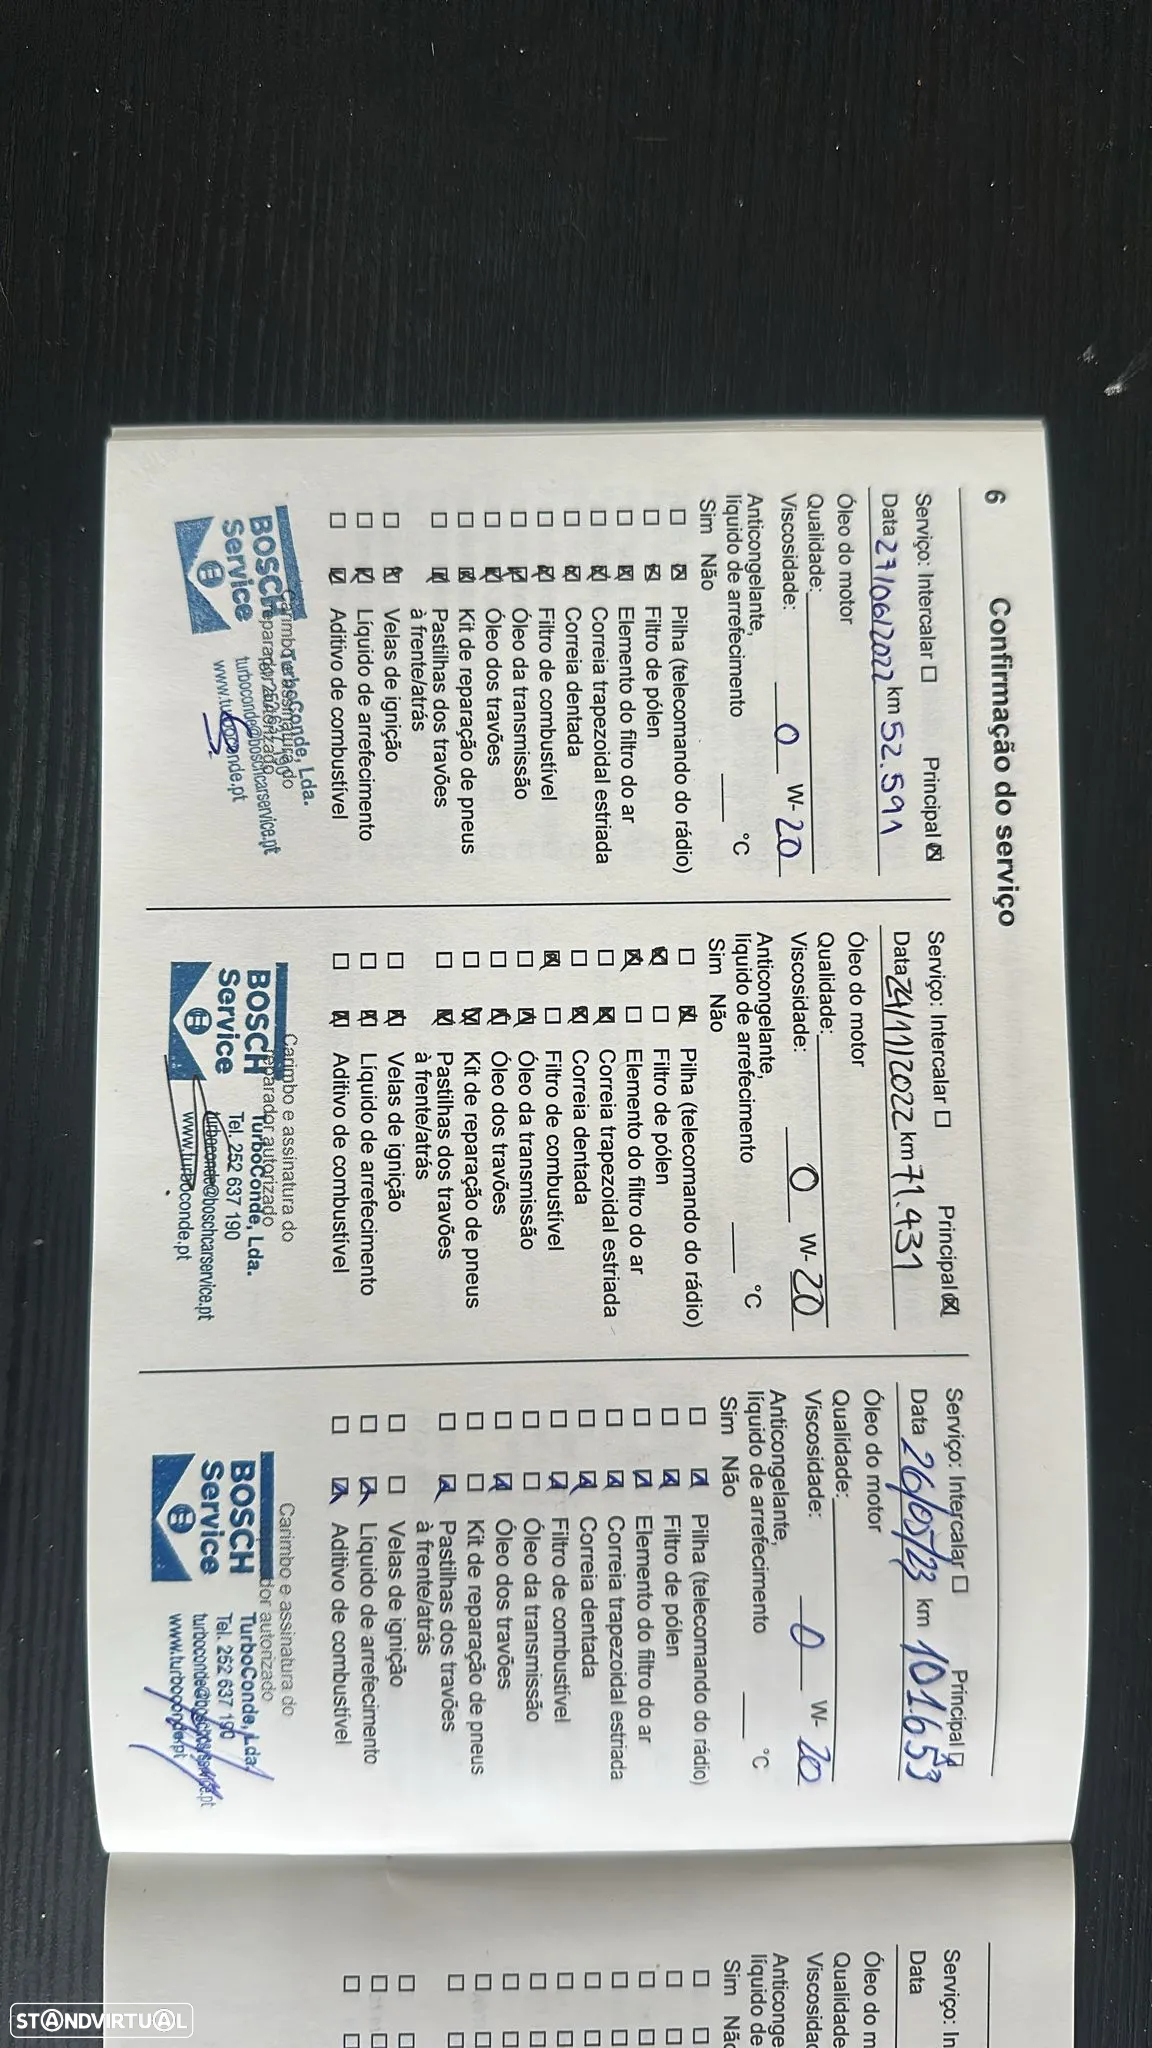 6 Confirmação do serviço
Serviço: Intercalar Principal
Data 27/06/2022 km 52.591
Óleo do motor
Qualidade:
Viscosidade: 0 W- 20
Anticongelante,
líquido de arrefecimento °C
Sim Não
Pilha (telecomando do rádio)
Filtro de pólen
Elemento do filtro do ar
Correia trapezoidal estriada
Correia dentada
Filtro de combustível
Óleo da transmissão
Óleo dos travões
Kit de reparação de pneus
Pastilhas dos travões
à frente/atrás
Velas de ignição
Líquido de arrefecimento
Aditivo de combustível
Carimbo e assinatura do
reparador autorizado
BOSCH
Service
TurboConde, Lda.
turboconde@boschcarservice.pt
www.turboconde.pt
Serviço: Intercalar Principal
Data 24/11/2022 km 71.431
Óleo do motor
Qualidade:
Viscosidade: 0 W- 20
Anticongelante,
líquido de arrefecimento °C
Sim Não
Pilha (telecomando do rádio)
Filtro de pólen
Elemento do filtro do ar
Correia trapezoidal estriada
Correia dentada
Filtro de combustível
Óleo da transmissão
Óleo dos travões
Kit de reparação de pneus
Pastilhas dos travões
à frente/atrás
Velas de ignição
Líquido de arrefecimento
Aditivo de combustível
Carimbo e assinatura do
reparador autorizado
BOSCH
Service
TurboConde, Lda.
Tel. 252 637 190
turboconde@boschcarservice.pt
www.turboconde.pt
Serviço: Intercalar Principal
Data 26/05/23 km 101.653
Óleo do motor
Qualidade:
Viscosidade: 0 W- 20
Anticongelante,
líquido de arrefecimento °C
Sim Não
Pilha (telecomando do rádio)
Filtro de pólen
Elemento do filtro do ar
Correia trapezoidal estriada
Correia dentada
Filtro de combustível
Óleo da transmissão
Óleo dos travões
Kit de reparação de pneus
Pastilhas dos travões
à frente/atrás
Velas de ignição
Líquido de arrefecimento
Aditivo de combustível
Carimbo e assinatura do
dor autorizado
BOSCH
Service
TurboConde, Lda.
Tel. 252 637 190
turboconde@boschcarservice.pt
www.turboconde.pt
Serviço: In
Data
Óleo do m
Qualidade
Viscosidad
Anticonge
líquido de
Sim Nã
STANDVIRTUAL